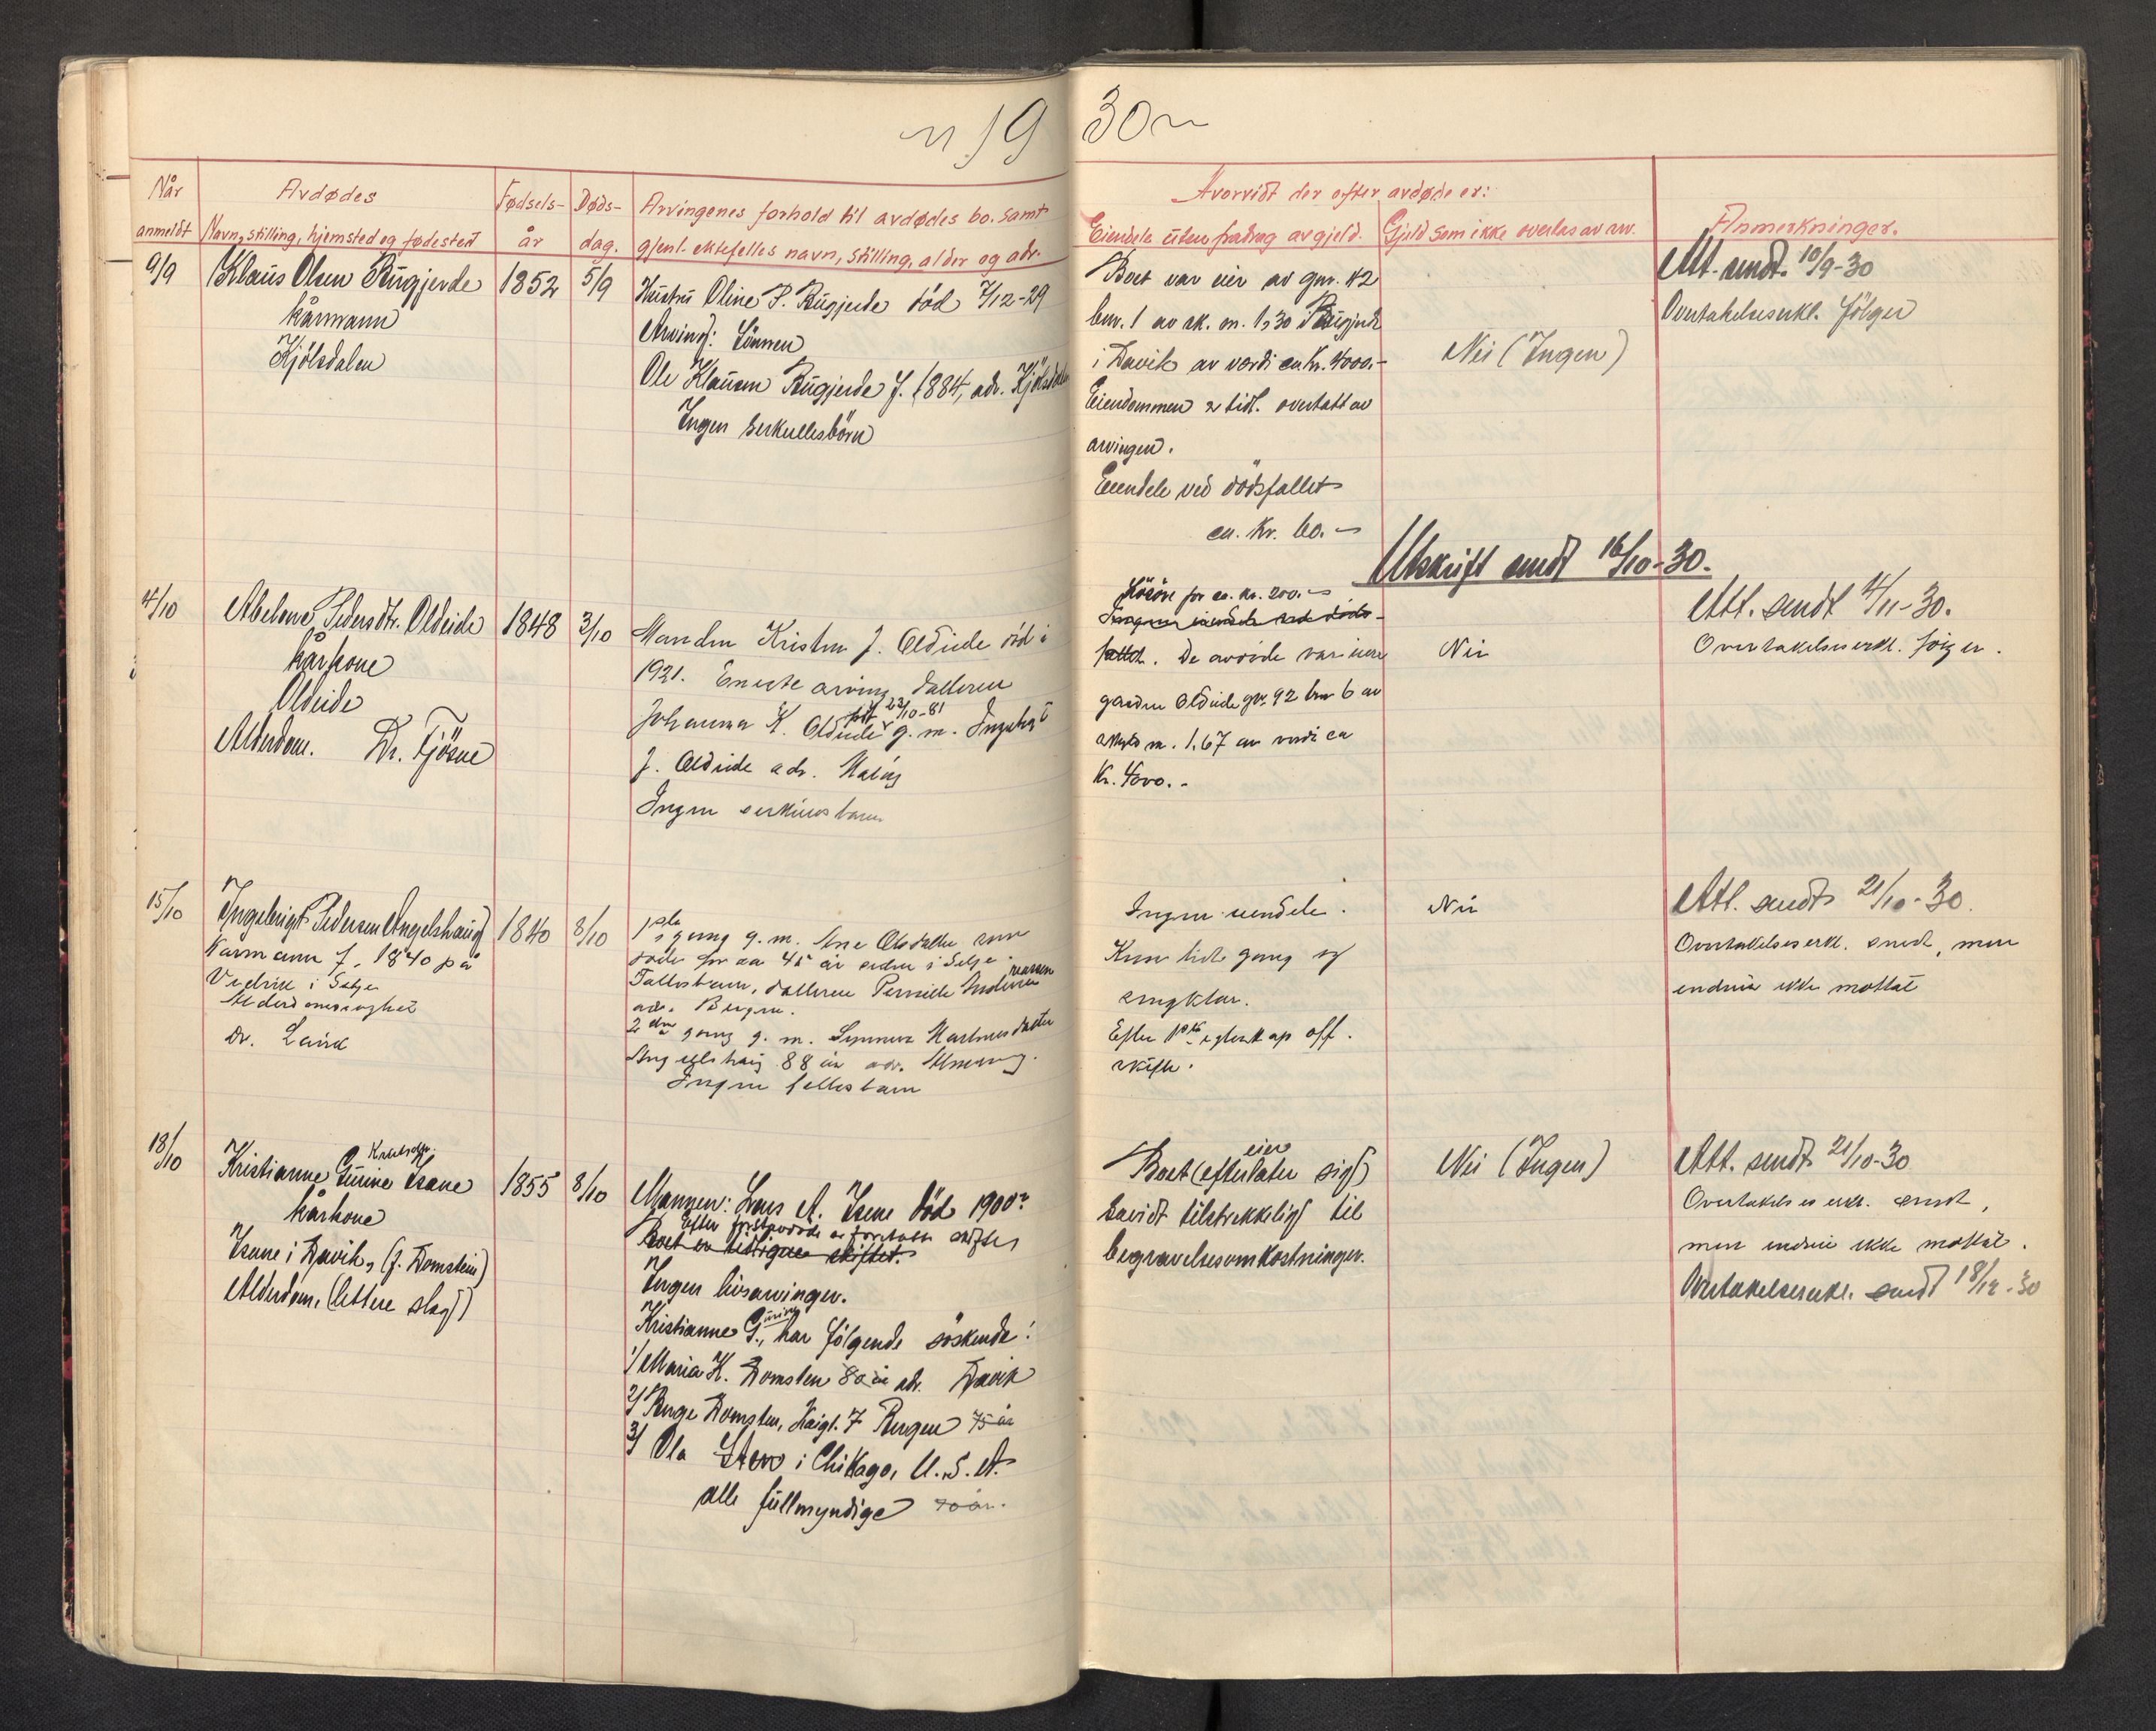 19 30
Når
anmeldt
Avdødes
Navn, stilling, hjemsted og fødested
Fødsels-
år
Døds-
dag.
Arvingenes forhold til avdødes bo. samt
gjenl. ektefelles navn, stilling, alder og adr.
Hvorvidt der efter avdøde er:
Eiendele uten fradrag av gjeld.
Gjeld som ikke overtas av arv.
Anmerkninger.
9/9
Klaus Olsen Rugjerde
kårmann
Kjölsdalen
1852
5/9
Hustru Oline P. Rugjerde död 7/12-29
Arving: Sönnen
Ole Klausen Rugjerde f. 1884, adr. Kjölsdalen
Ingen serkullesbörn
Boet var eier av gnr. 42
bnr. 1 av sk. m. 1,30 Rugjerde
i Davik av verdi ca kr. 4000.-
Eiendommen er tidl. overtatt av
arvingen.
Eiendele ved dödsfallet
ca. kr. 60.-
Nei (Ingen)
Att. sendt. 10/9-30
Overtakelseserkl. fölger
Utskrift sendt 16/10-30.
4/10
Abelone Pedersdtr. Oldeide
kårkone
Oldeide
Alderdom. Dr. Fjösne
1848
3/10
Mannen Kristen J. Oldeide död i
1921. Eneste arving datteren
Johanna K. Oldeide född 22/10-81 g. m. Ingebrigt
J. Oldeide adr. Maløy
Ingen serkullesbarn
Lösöre for ca. kr. 200.-
Ingen eiendele ved döds-
fallet. De avdöde var eiere
garden Oldeide gnr 92 bnr 6 av
skyld m. 1,67 av verdi ca
Kr. 4000.-
Nei
Att. sendt 4/11-30.
Overtakelseserkl. følger.
15/10
Ingebrigt Pedersen Angelshaug
Kårmann f. 1840 på
Vedvik i Selje
Alderdomssvaghet
Dr.
1840
8/10
1ste gang g. m. Ane Olsdatter som
døde for ca 45 år siden i Selje.
Fellesbarn, datteren Pernille
adr. Bergen.
2den gang g. m. Synneve Martinusdatter
Angelshaug 88 år adr. Almenning.
Ingen fellesbarn
Ingen eiendele.
Kun litt gang og
sengklær.
Efter 1ste egteskap off.
skifte.
Nei
Att. sendt 21/10-30.
Overtakelseserkl. sendt, men
endnu ikke mottat
18/10
Kristianne Gurine Knutsdtr. Isane
kårkone
Isane i Davik, (f. Domstein)
Alderdom. (lettere slag)
1855
8/10
Mannen: Lars A. Isane död 1900?
Efter förstavdöde er foretatt skifte
Boet er tidligere skiftet.
Ingen livsarvinger.
Kristianne Gurine, har fölgende söskende:
1/ Maria K. Domsten 80 år adr. Davik
2/ Berge Domsten, 7 Bergen 75 år
3/ Ola Sten i Chikago, U.S.A.
alle fullmyndige 70 år.
Boet (efterlater sig) eier
såvidt tilstrekkeligt til
begravelsesomkostninger.
Nei (Ingen)
Att. sendt 21/10-30
Overtakelseserkl. sendt,
men endnu ikke mottat.
Overtakelseserkl. sendt 18/12-30